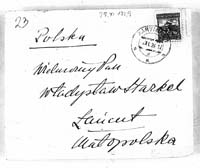 23
29.XI 1929
Polska
Wielmożny Pan
Władysław Markel
Łańcut
Małopolska